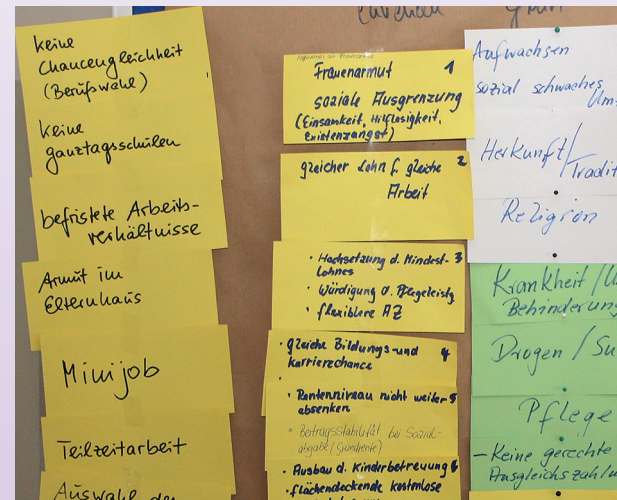 keine
Chancengleichheit
(Berufswahl)
keine
ganztagsschulen
befristete Arbeits-
verhältnisse
Armut im
Elternhaus
Minijob
Teilzeitarbeit
Auswahl der
Frauenarmut 1
soziale Ausgrenzung
(Einsamkeit, Hilflosigkeit,
Existenzangst)
gleicher Lohn f. gleiche 2
Arbeit
• Hochsetzung d. Mindest- 3
lohnes
• Würdigung d. Pflegeleistg
• flexiblere AZ
• gleiche Bildungs- und 4
Karrierechance
• Rentenniveau nicht weiter 5
absenken
• Beitragsstabilität bei Sozial-
abgabe
• Ausbau d. Kinderbetreuung 6
• flächendeckende kostenlose
Aufwachsen
sozial schwaches
Herkunft/
Tradit
Religion
Krankheit /
Behinderung
Drogen / Su
Pflege
- Keine gerechte
Ausgleichszahlu